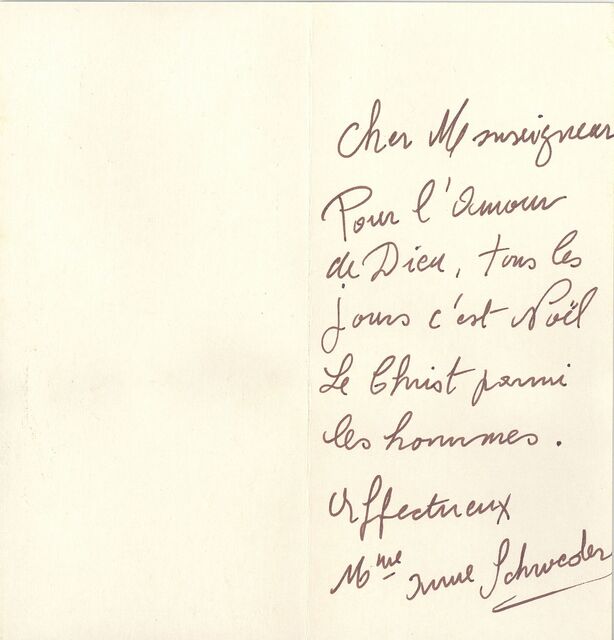 Cher Monseigneur
Pour l'Amour
de Dieu, tous les
jours c'est Noël
Le Christ parmi
les hommes.
Affectueux
Mme Anne Schroeder